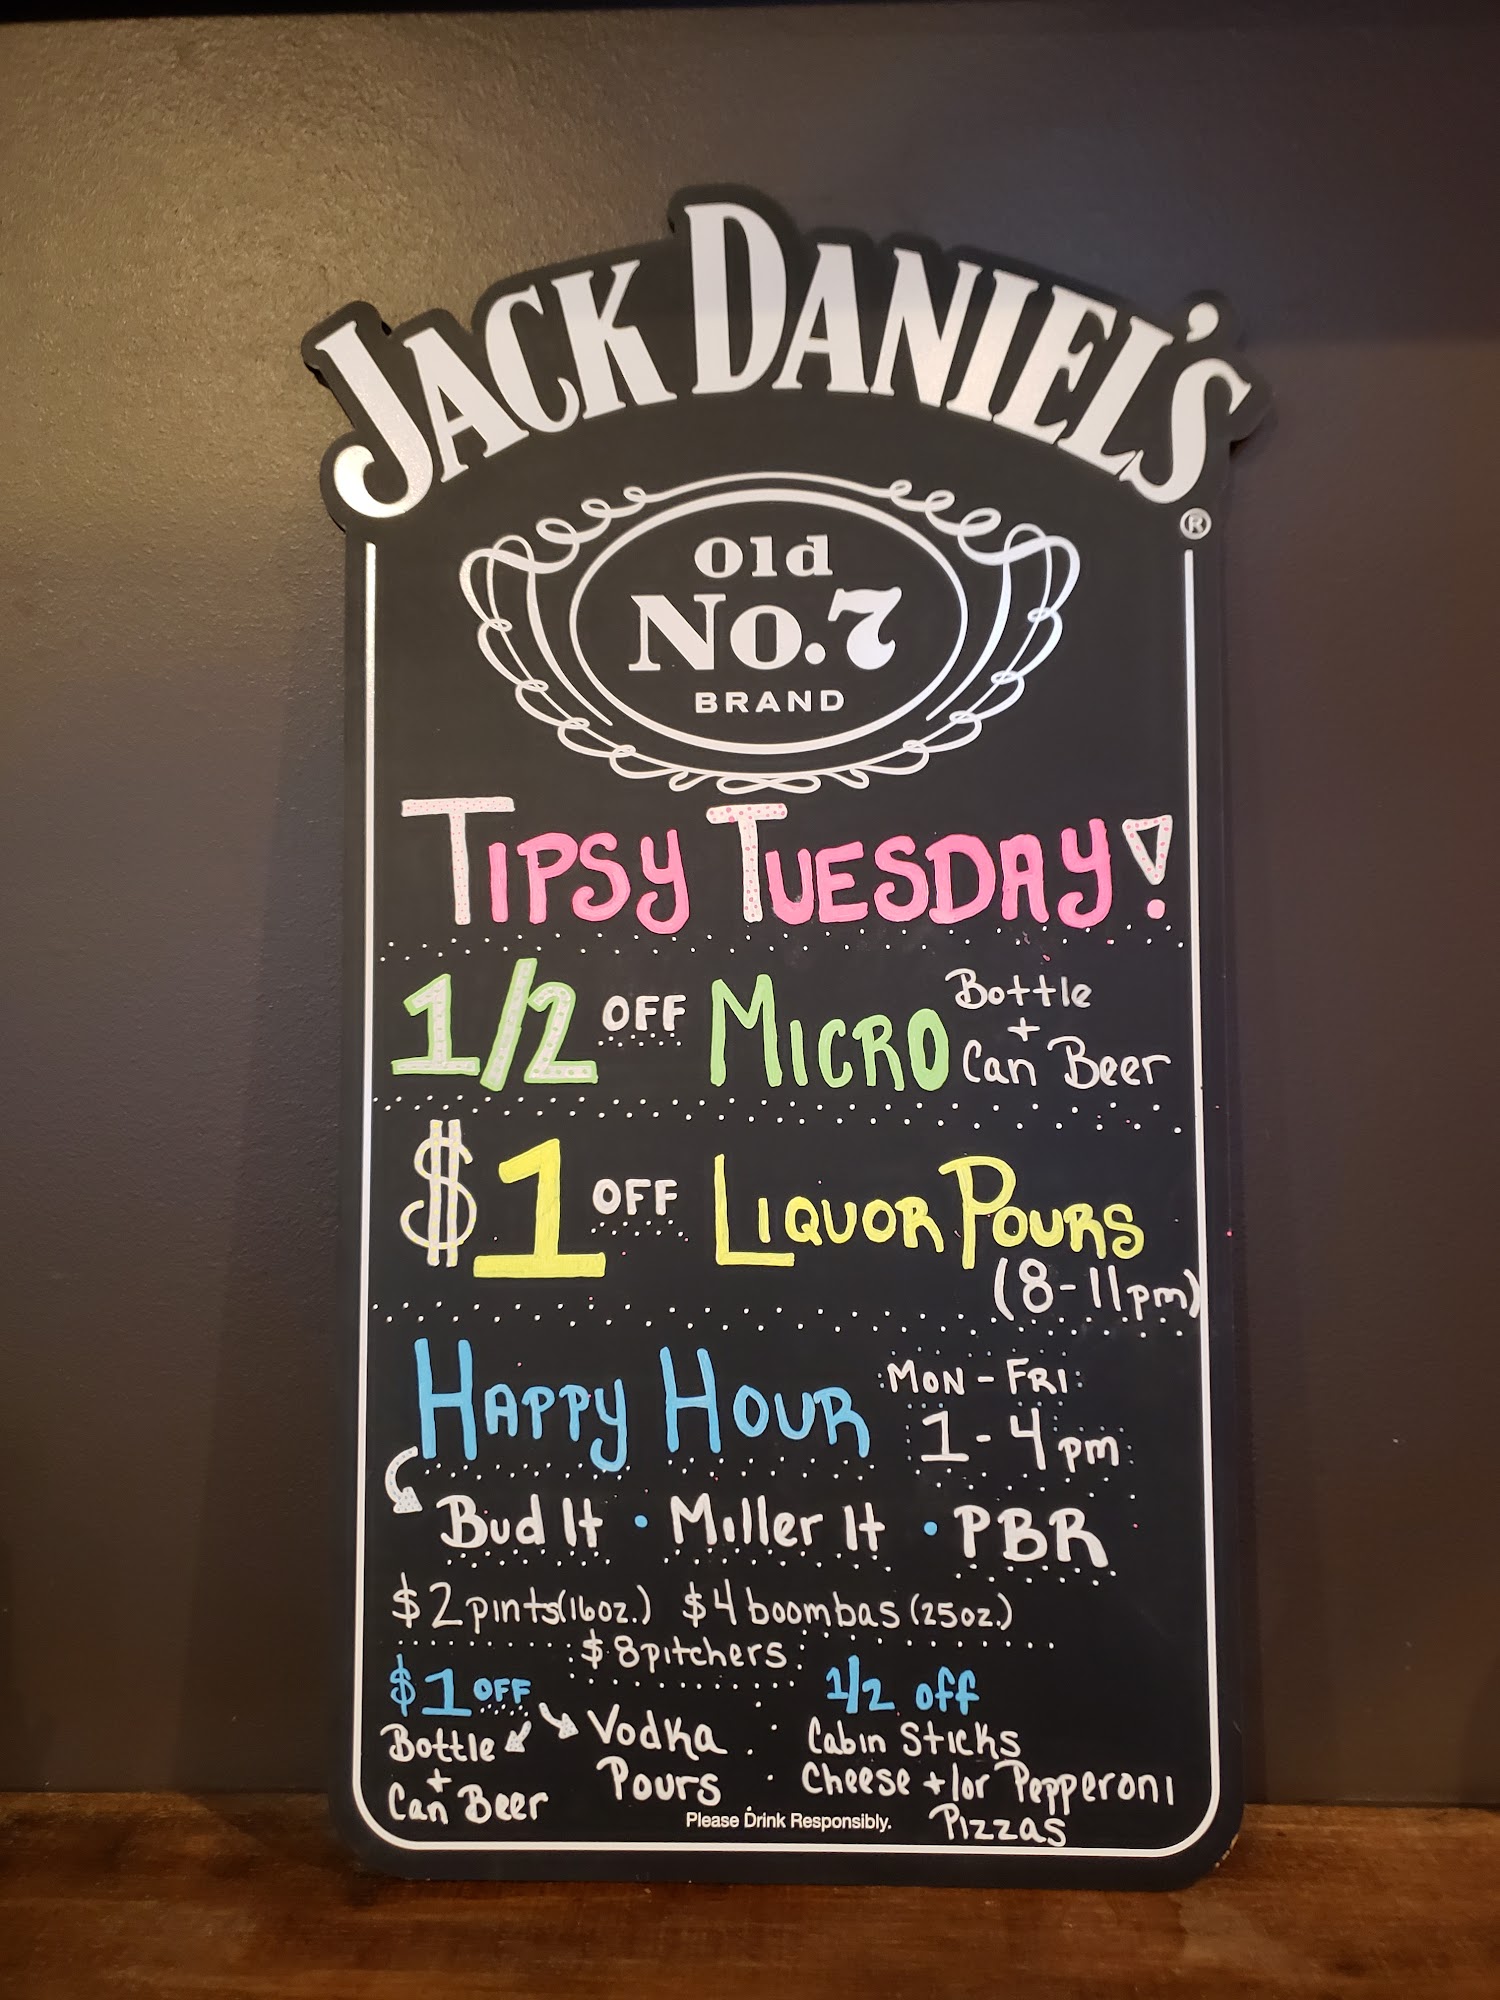 JACK DANIEL'S
®
Old
No.7
BRAND
TIPSY TUESDAY!
1/2 OFF MICRO Bottle + Can Beer
$1 OFF LIQUOR POURS
(8-11pm)
HAPPY HOUR :MON-FRI:
1-4pm
Bud lt • Miller lt • PBR
$2 pints (16oz.) $4 boombas (25oz.)
$8 pitchers
$1 OFF
Bottle
+
Can Beer
Vodka
Pours
1/2 off
Cabin Sticks
Cheese +/or Pepperoni
Pizzas
Please Drink Responsibly.